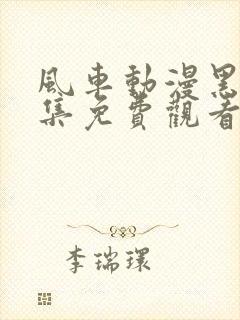 風車動漫黑
集免費觀看
李瑞環